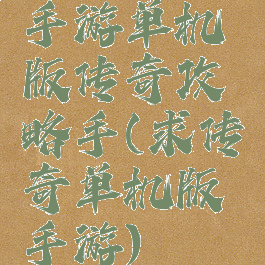 手游单机
版传奇攻
略手(求传
奇单机版
手游)